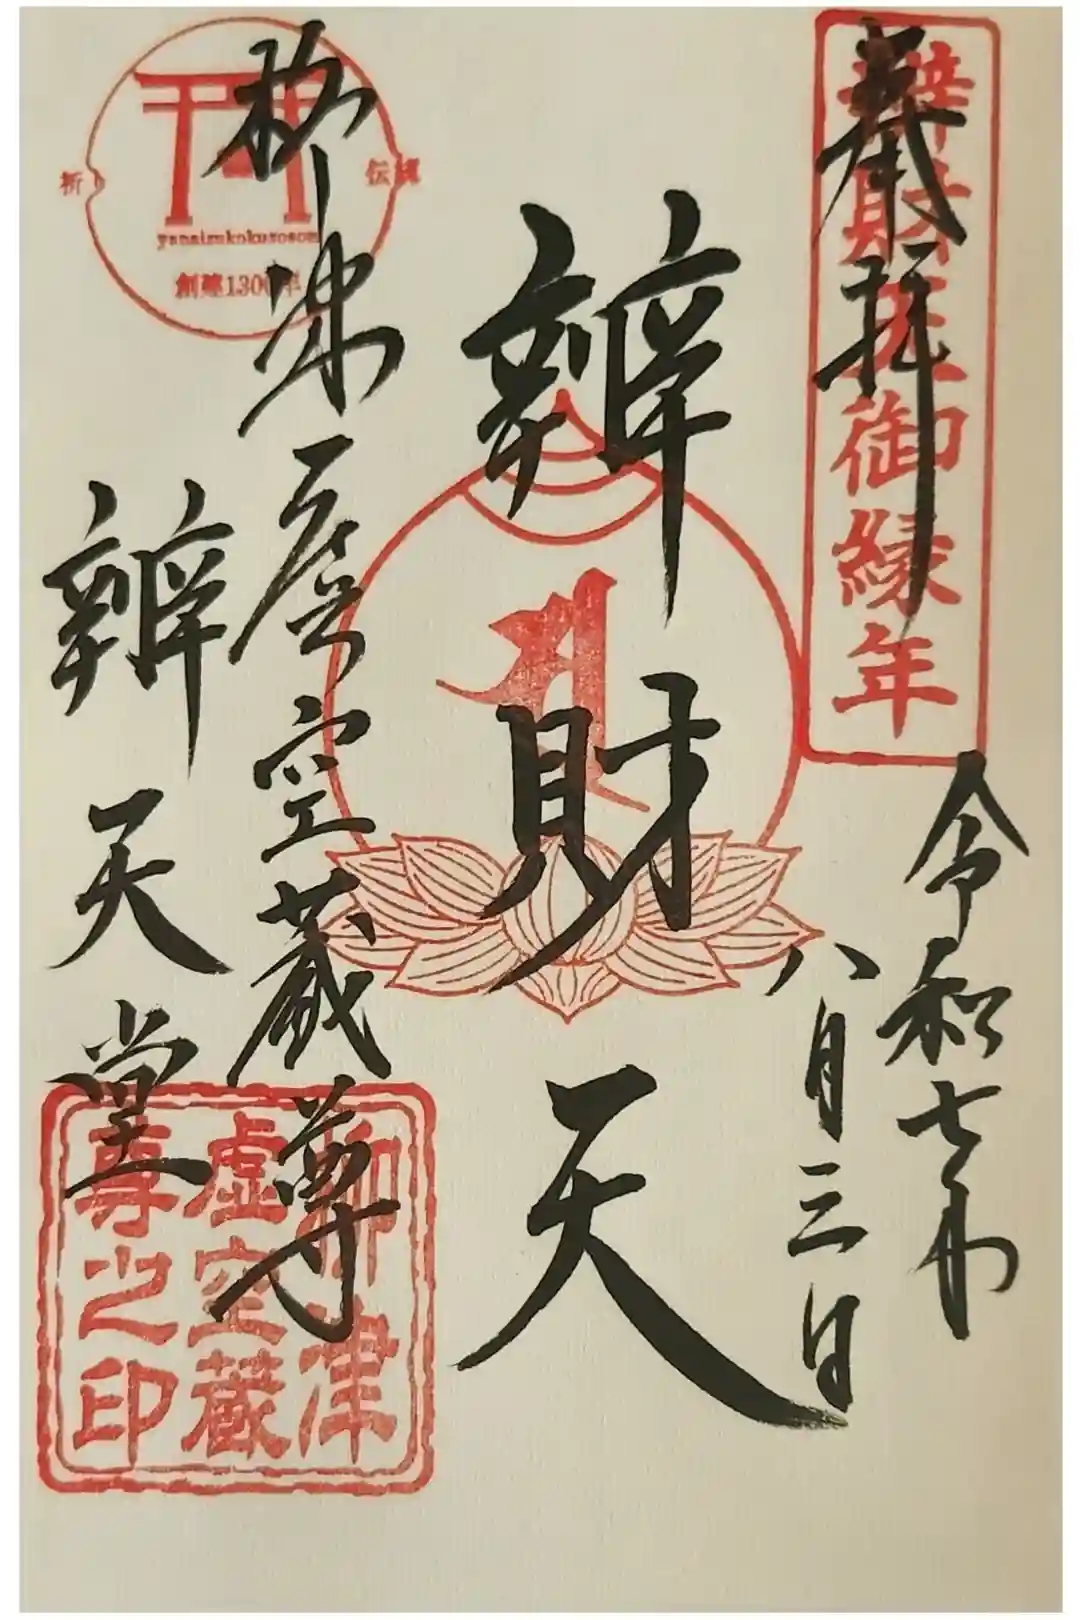 奉拝
辨財天御縁年
令和七年
八月三日
辨財天
柳津虚空蔵尊
辨天堂
祈り
伝統
yanaizukokuzoson
創建1300年
柳津
虚空蔵
尊之印